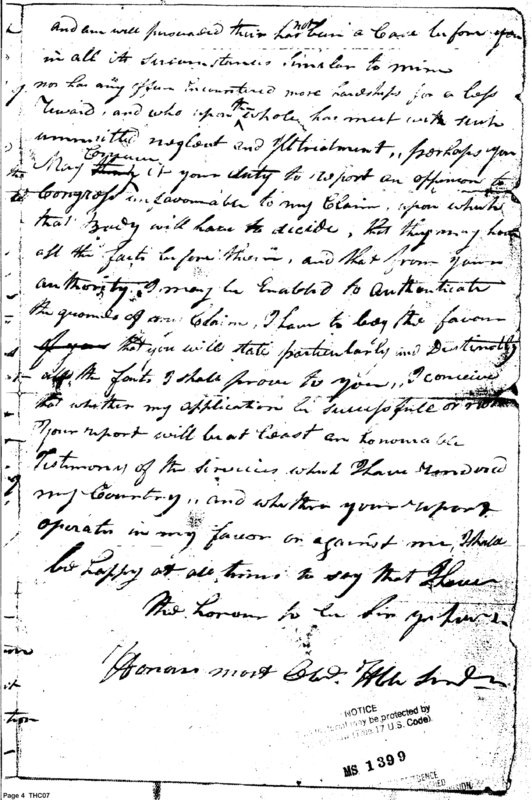 and am well persuaded their has not been a Case before you
in all its sircumstances similar to mine
nor has any offiser Encountered more hardships for a less
reward, and who upon the whole has meet with such
unmiritted neglect and Illtreatment,, perhaps you
May Conceive think it your duty to report an oppinion to
Congress unfavourable to my Claim, upon which
that Body will have to decide, that they may have
all the facts before them, and that from your
authority I may be Enabled to authenticate
the grounds of my Claim, I have to beg the favour
of you that you will state particularly and Distinctly
all the facts I shall prove to you,, I conceive
that whether my application be successfull or not
Your report will be at least an honourable
Testimony of the Services which I have rendered
my Country,, and whether your report
operates in my favor or against me, I shall
be happy at all times to say that I have
the honour to be Sir your
Honours most Obd. Hble Servt
NOTICE
material may be protected by
(Title 17 U.S. Code).
MS 1399
Page 4 THC07